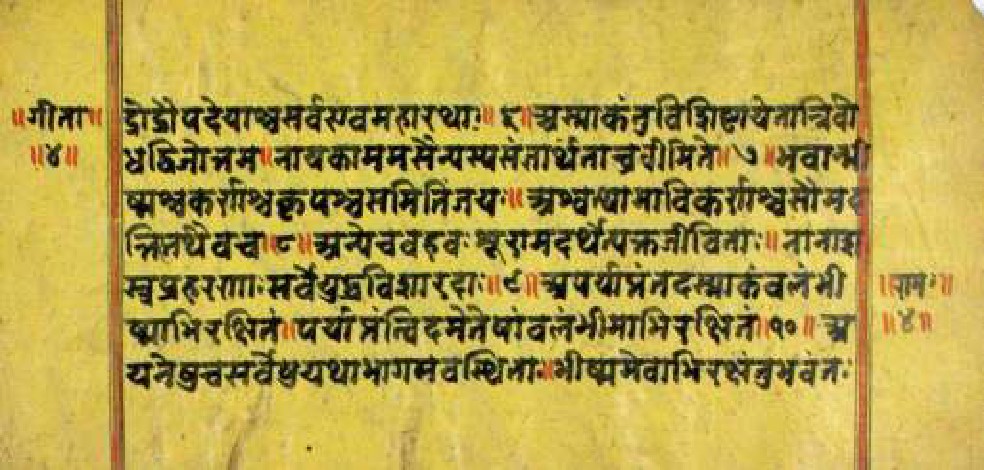 ॥गीता॥ द्रोद्रौपदेयाश्चसर्वएवमहारथाः॥६॥अस्माकंतुविशिष्टायेतान्निबो
॥४॥ धद्विजोत्तम॥नायकाममसैन्यस्यसंज्ञार्थंतान्ब्रवीमिते॥७॥भवान्भी
ष्मश्चकर्णश्चकृपश्चसमितिंजयः॥अश्वत्थामाविकर्णश्चसौमद
त्तिस्तथैवच॥८॥अन्येचवहवःशूरामदर्थेत्यक्तजीविताः॥नानाश
स्त्रप्रहरणाःसर्वेयुद्धविशारदाः॥९॥अपर्याप्तंतदस्माकंवलंभी ॥राम॥
ष्माभिरक्षितं॥पर्याप्तंत्विदमेतेषांवलंभीमाभिरक्षितं॥१०॥अ ॥४॥
यनेषुचसर्वेषुयथाभागमवस्थिताः॥भीष्ममेवाभिरक्षंतुभवंतः